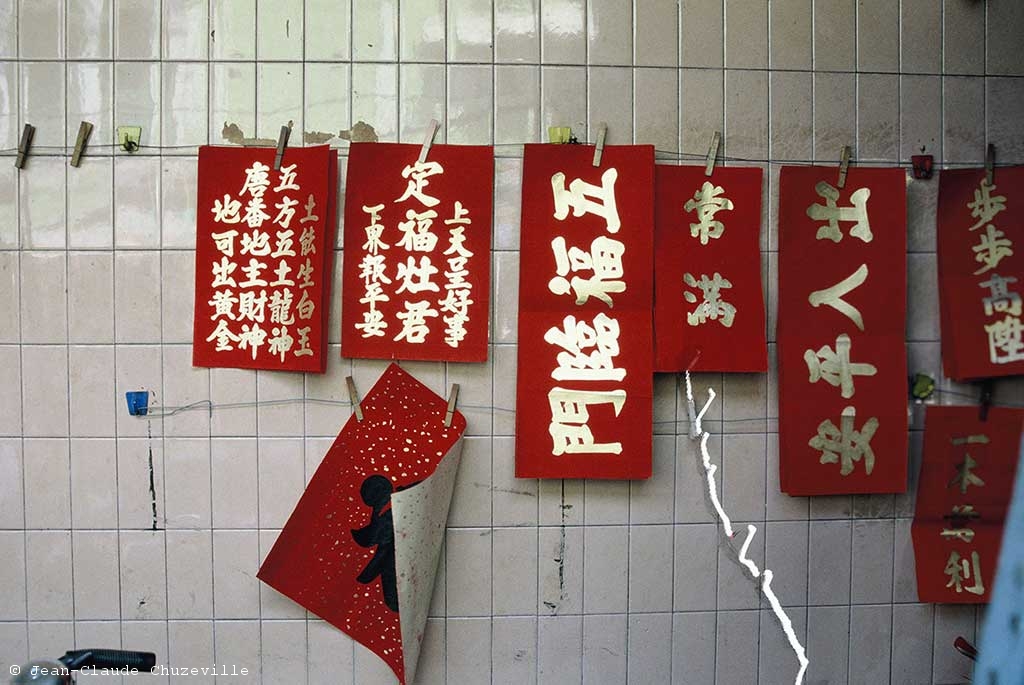 土能生白玉
五方五土龍神
唐番地主財神
地可出黃金
上天呈好事
定福灶君
下界報平安
五福臨門
常滿
出入平安
步步高陞
一本萬利
© Jean-Claude Chuzeville